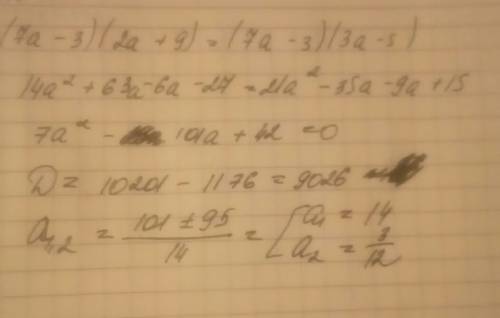 (7a - 3)(2a + 9) = (7a - 3)(3a - 5)
14a² + 63a - 6a - 27 = 21a² - 35a - 9a + 15
7a² - 101a + 42 = 0
D = 10201 - 1176 = 9026
a₁,₂ = (101 ± 95)/14 = [a₁ = 14
a₂ = 3/12